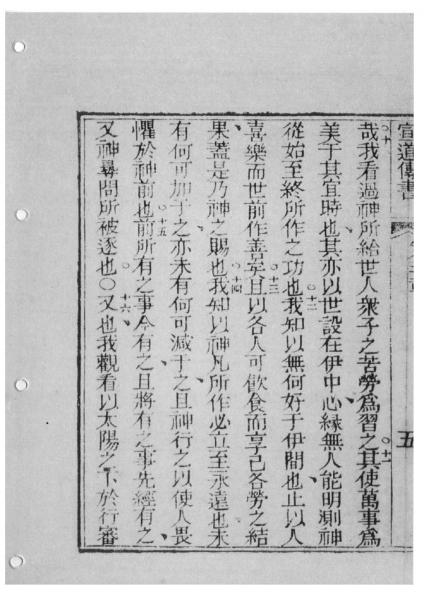 宣道傳書
五
○十哉我看過神所給世人衆子之苦勞爲習之○十一其使萬事爲
美于其宜時也其亦以世設在伊中心緣無人能明測神
從始至終所作之功也○十二我知以無何好于伊間也止以人
喜樂而世前作善○十三且以各人可飮食而享己各勞之結
果蓋是乃神之賜也○十四我知以神凡所作必立至永遠也未
有何可加于之亦未有何可减于之且神行之以使人畏
懼於神前也○十五前所有之事今有之且將有之事先經有之
又神尋問所被逐也○○十六又也我觀看以太陽之下於行審